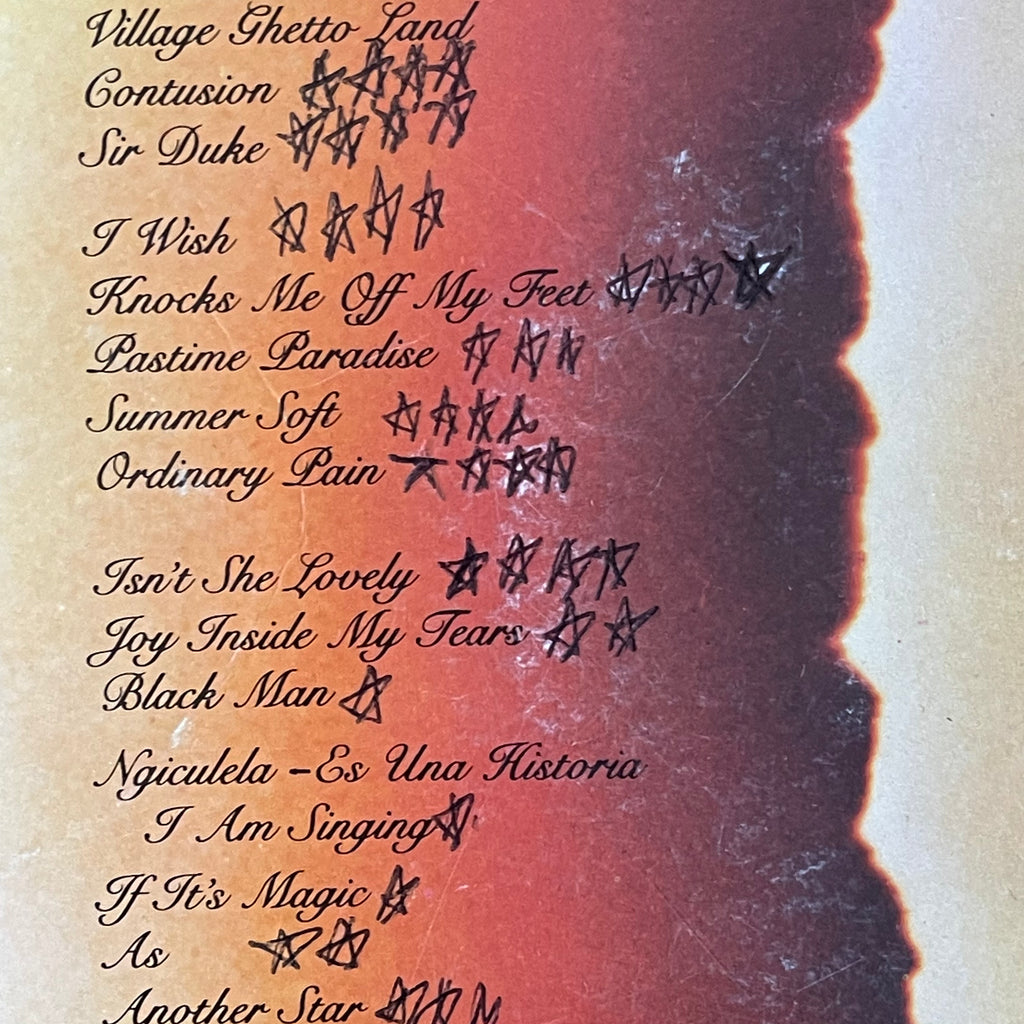 Village Ghetto Land
Contusion
Sir Duke
I Wish
Knocks Me Off My Feet
Pastime Paradise
Summer Soft
Ordinary Pain
Isn't She Lovely
Joy Inside My Tears
Black Man
Ngiculela -Es Una Historia
I Am Singing
If It's Magic
As
Another Star